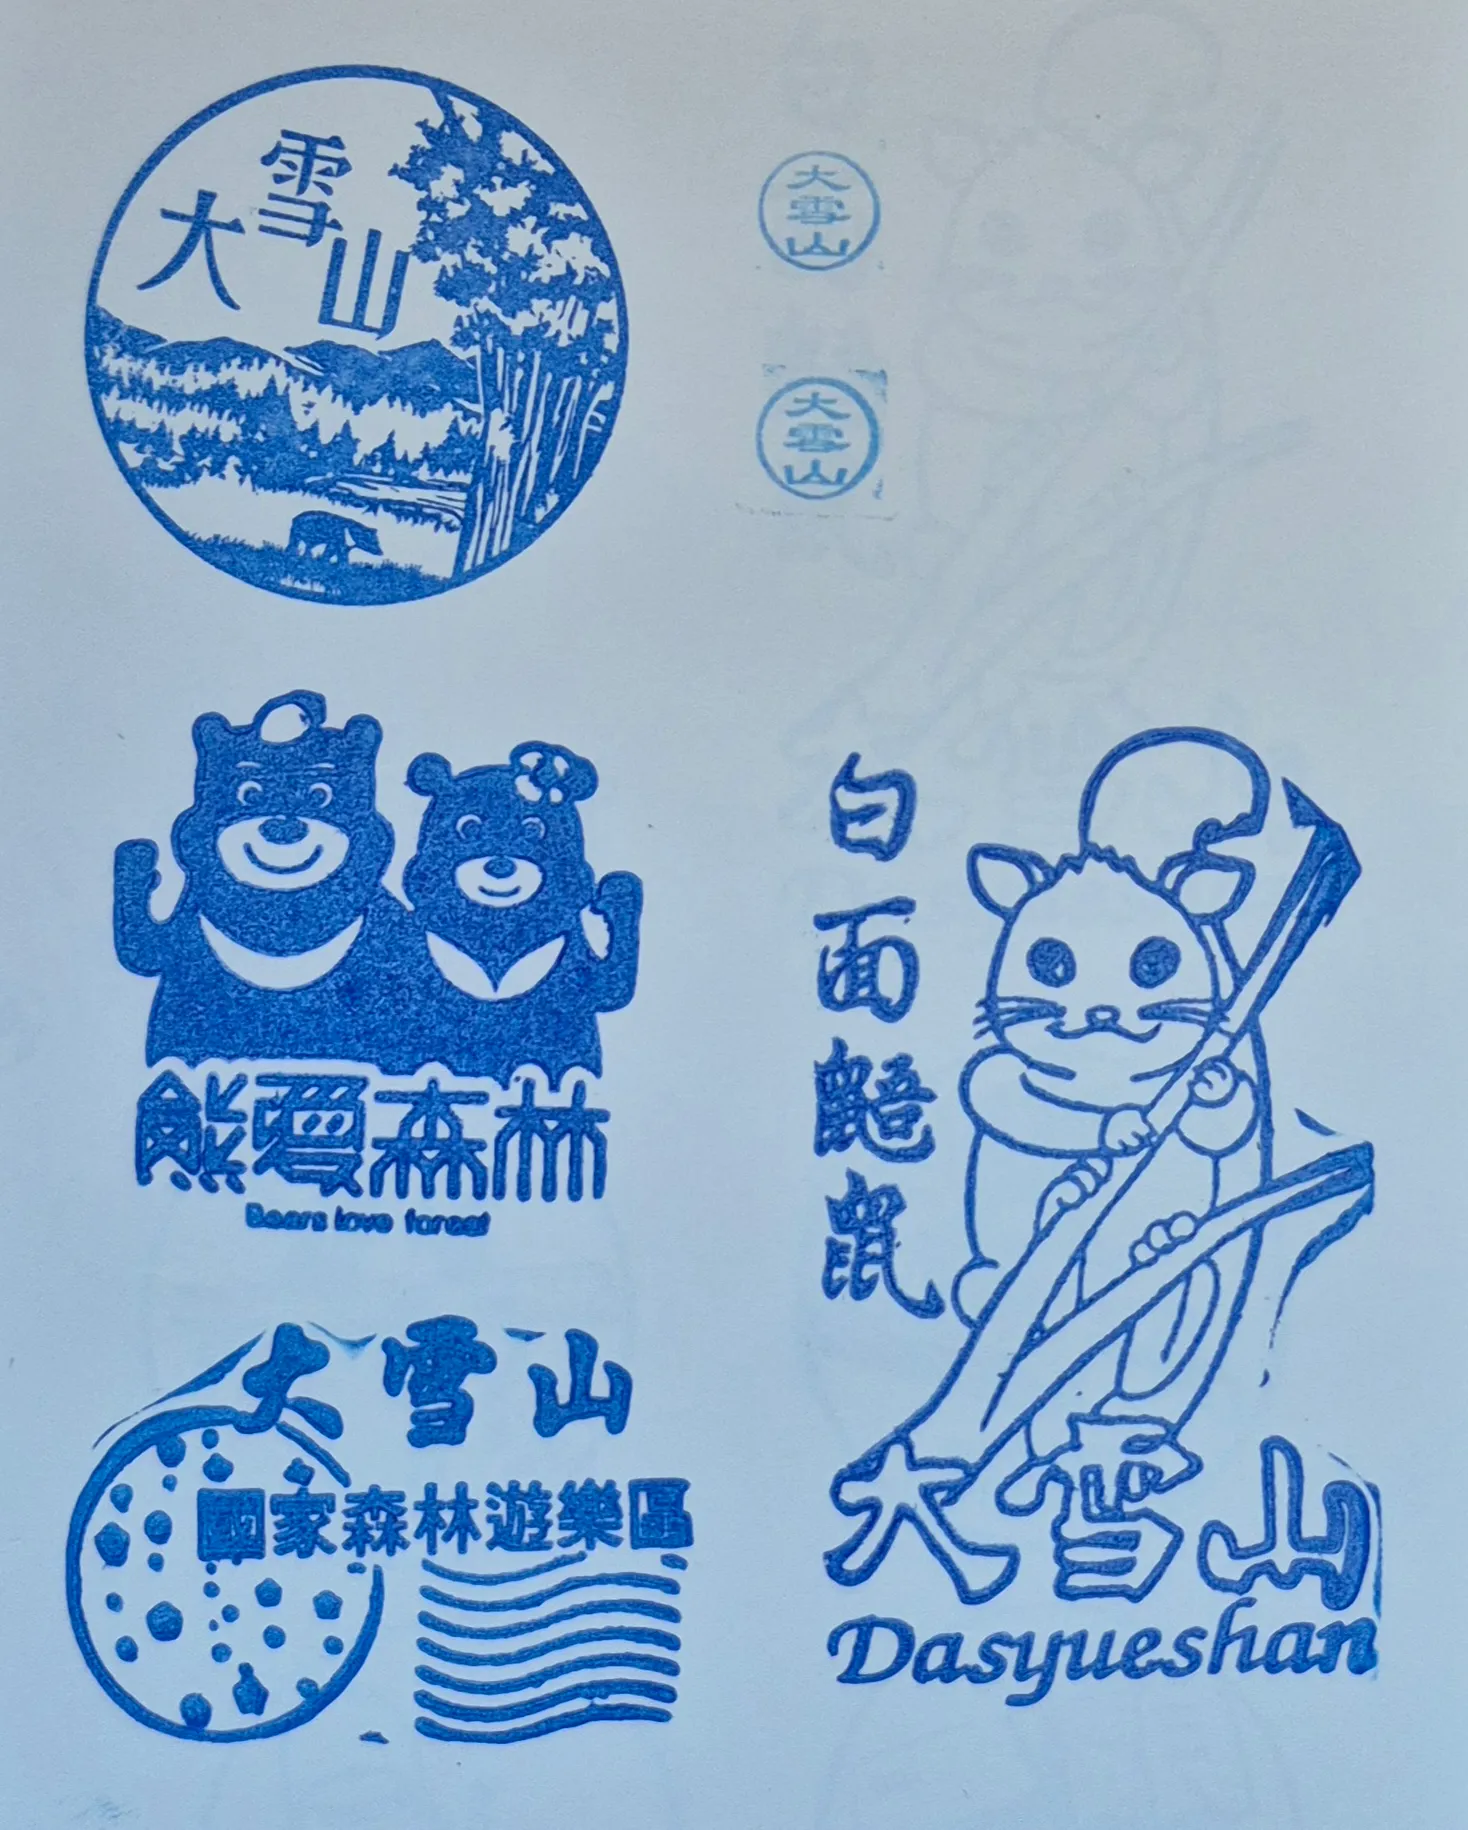 大雪山
大雪山
大雪山
熊愛森林
Bears love forest
大雪山
國家森林遊樂區
白面鼯鼠
大雪山
Dasyueshan